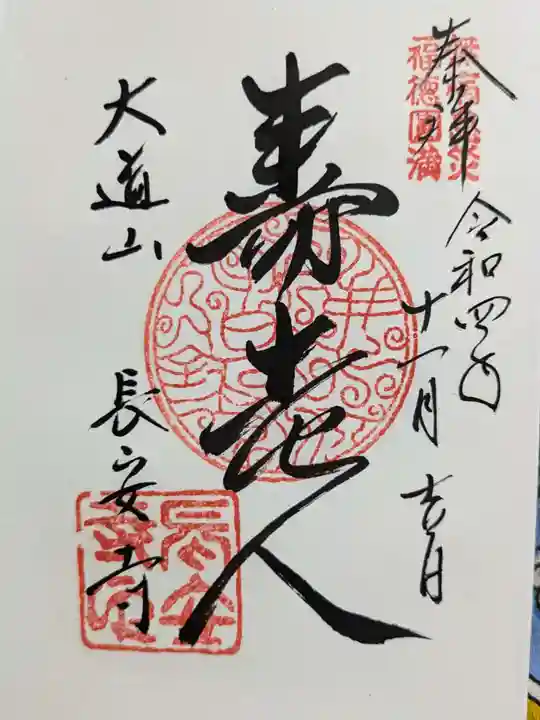 奉拝
無病息災
福徳円満
令和四年
十一月吉日
寿老人
大道山
長安寺